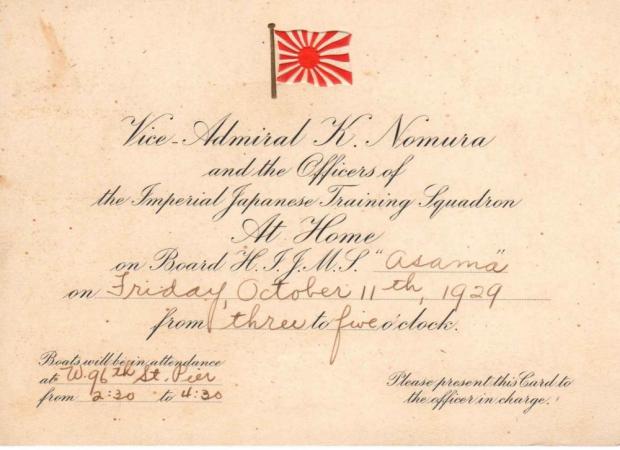 Vice-Admiral K. Nomura
and the Officers of
the Imperial Japanese Training Squadron
At Home
on Board H.I.J.M.S. "Asama"
on Friday, October 11th, 1929
from three to five o'clock.
Boats will be in attendance
at W. 96th St. Pier
from 2:30 to 4:30
Please present this Card to
the officer in charge.